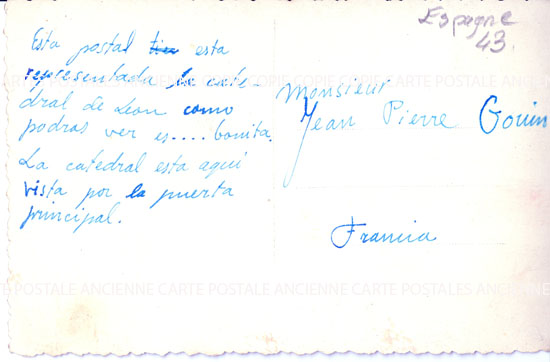 Espagne
43.
Esta postal esta
representada la cate-
dral de Leon como
podras ver es.... bonita.
La catedral esta aqui
vista por la puerta
principal.
Monsieur
Jean Pierre Gouin
Francia
COPIE COPIE COPIE CARTE POSTALE ANCIENNE
POSTALE ANCIENNE CARTE POSTALE ANCIENNE CARTE POSTALES ANCIENNE